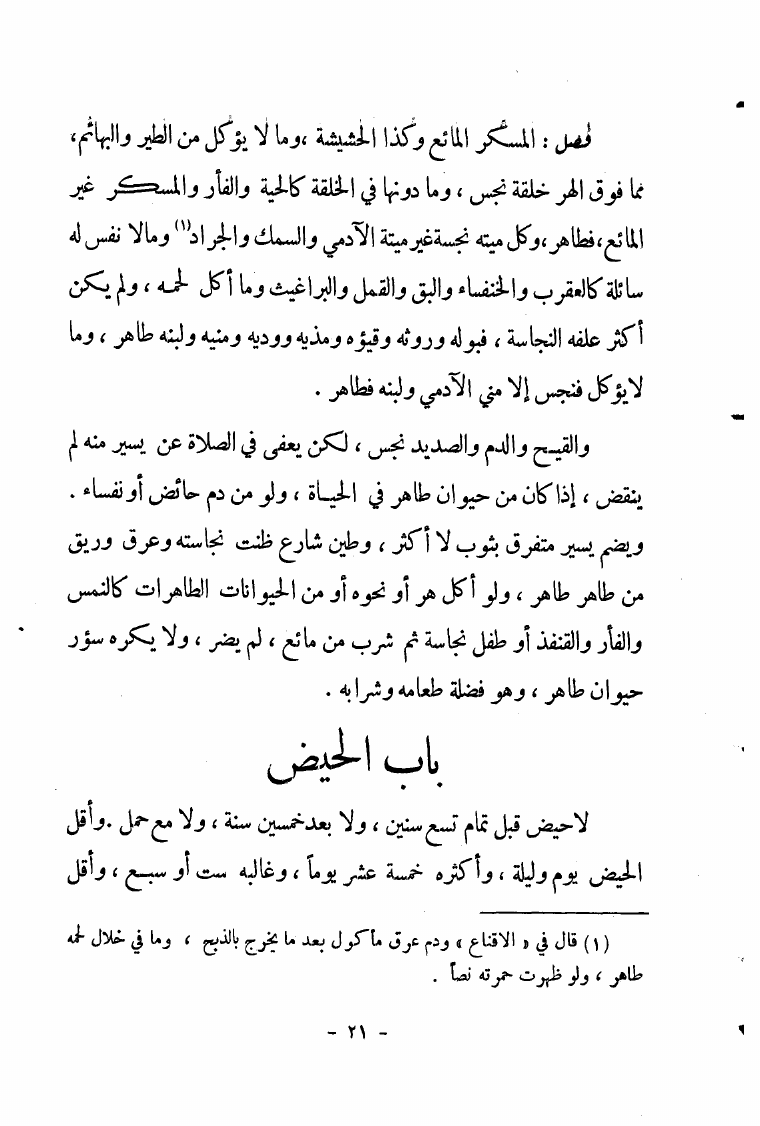 فصل : المسكر المائع وكذا الحشيشة ،وما لا يؤكل من الطير والبهائم،
مما فوق الهر خلقة نجس ، وما دونها في الخلقة كالحية والفأر والمسكر غير
المائع،فطاهر،وكل ميته نجسة غير ميتة الآدمي والسمك والجراد(١) ومالا نفس له
سائلة كالعقرب والخنفساء والبق والقمل والبراغيث وما أكل لحمه ، ولم يكن
أكثر علفه النجاسة ، فبوله وروثه وقيؤه ومذيه ووديه ومنيه ولبنه طاهر ، وما
لايؤكل فنجس إلا مني الآدمي ولبنه فطاهر .
والقيح والدم والصديد نجس ، لكن يعفى في الصلاة عن يسير منه لم
ينقض ، إذا كان من حيوان طاهر في الحياة ، ولو من دم حائض أو نفساء .
ويضم يسير متفرق بثوب لا أكثر ، وطين شارع ظنت نجاسته وعرق وريق
من طاهر طاهر ، ولو أكل هر أو نحوه أو من الحيوانات الطاهرات كالنمس
والفأر والقنفذ أو طفل نجاسة ثم شرب من مائع ، لم يضر ، ولا يكره سؤر
حيوان طاهر ، وهو فضلة طعامه وشرابه .
باب الحيض
لاحيض قبل تمام تسع سنين ، ولا بعد خمسين سنة ، ولا مع حمل .وأقل
الحيض يوم وليلة ، وأكثره خمسة عشر يوماً ، وغالبه ست أو سبع ، وأقل
(١) قال في « الاقناع » ودم عرق مأكول بعد ما يخرج بالذبح ، وما في خلال لحمه
طاهر ، ولو ظهرت حمرته نصاً .
- ٢١ -